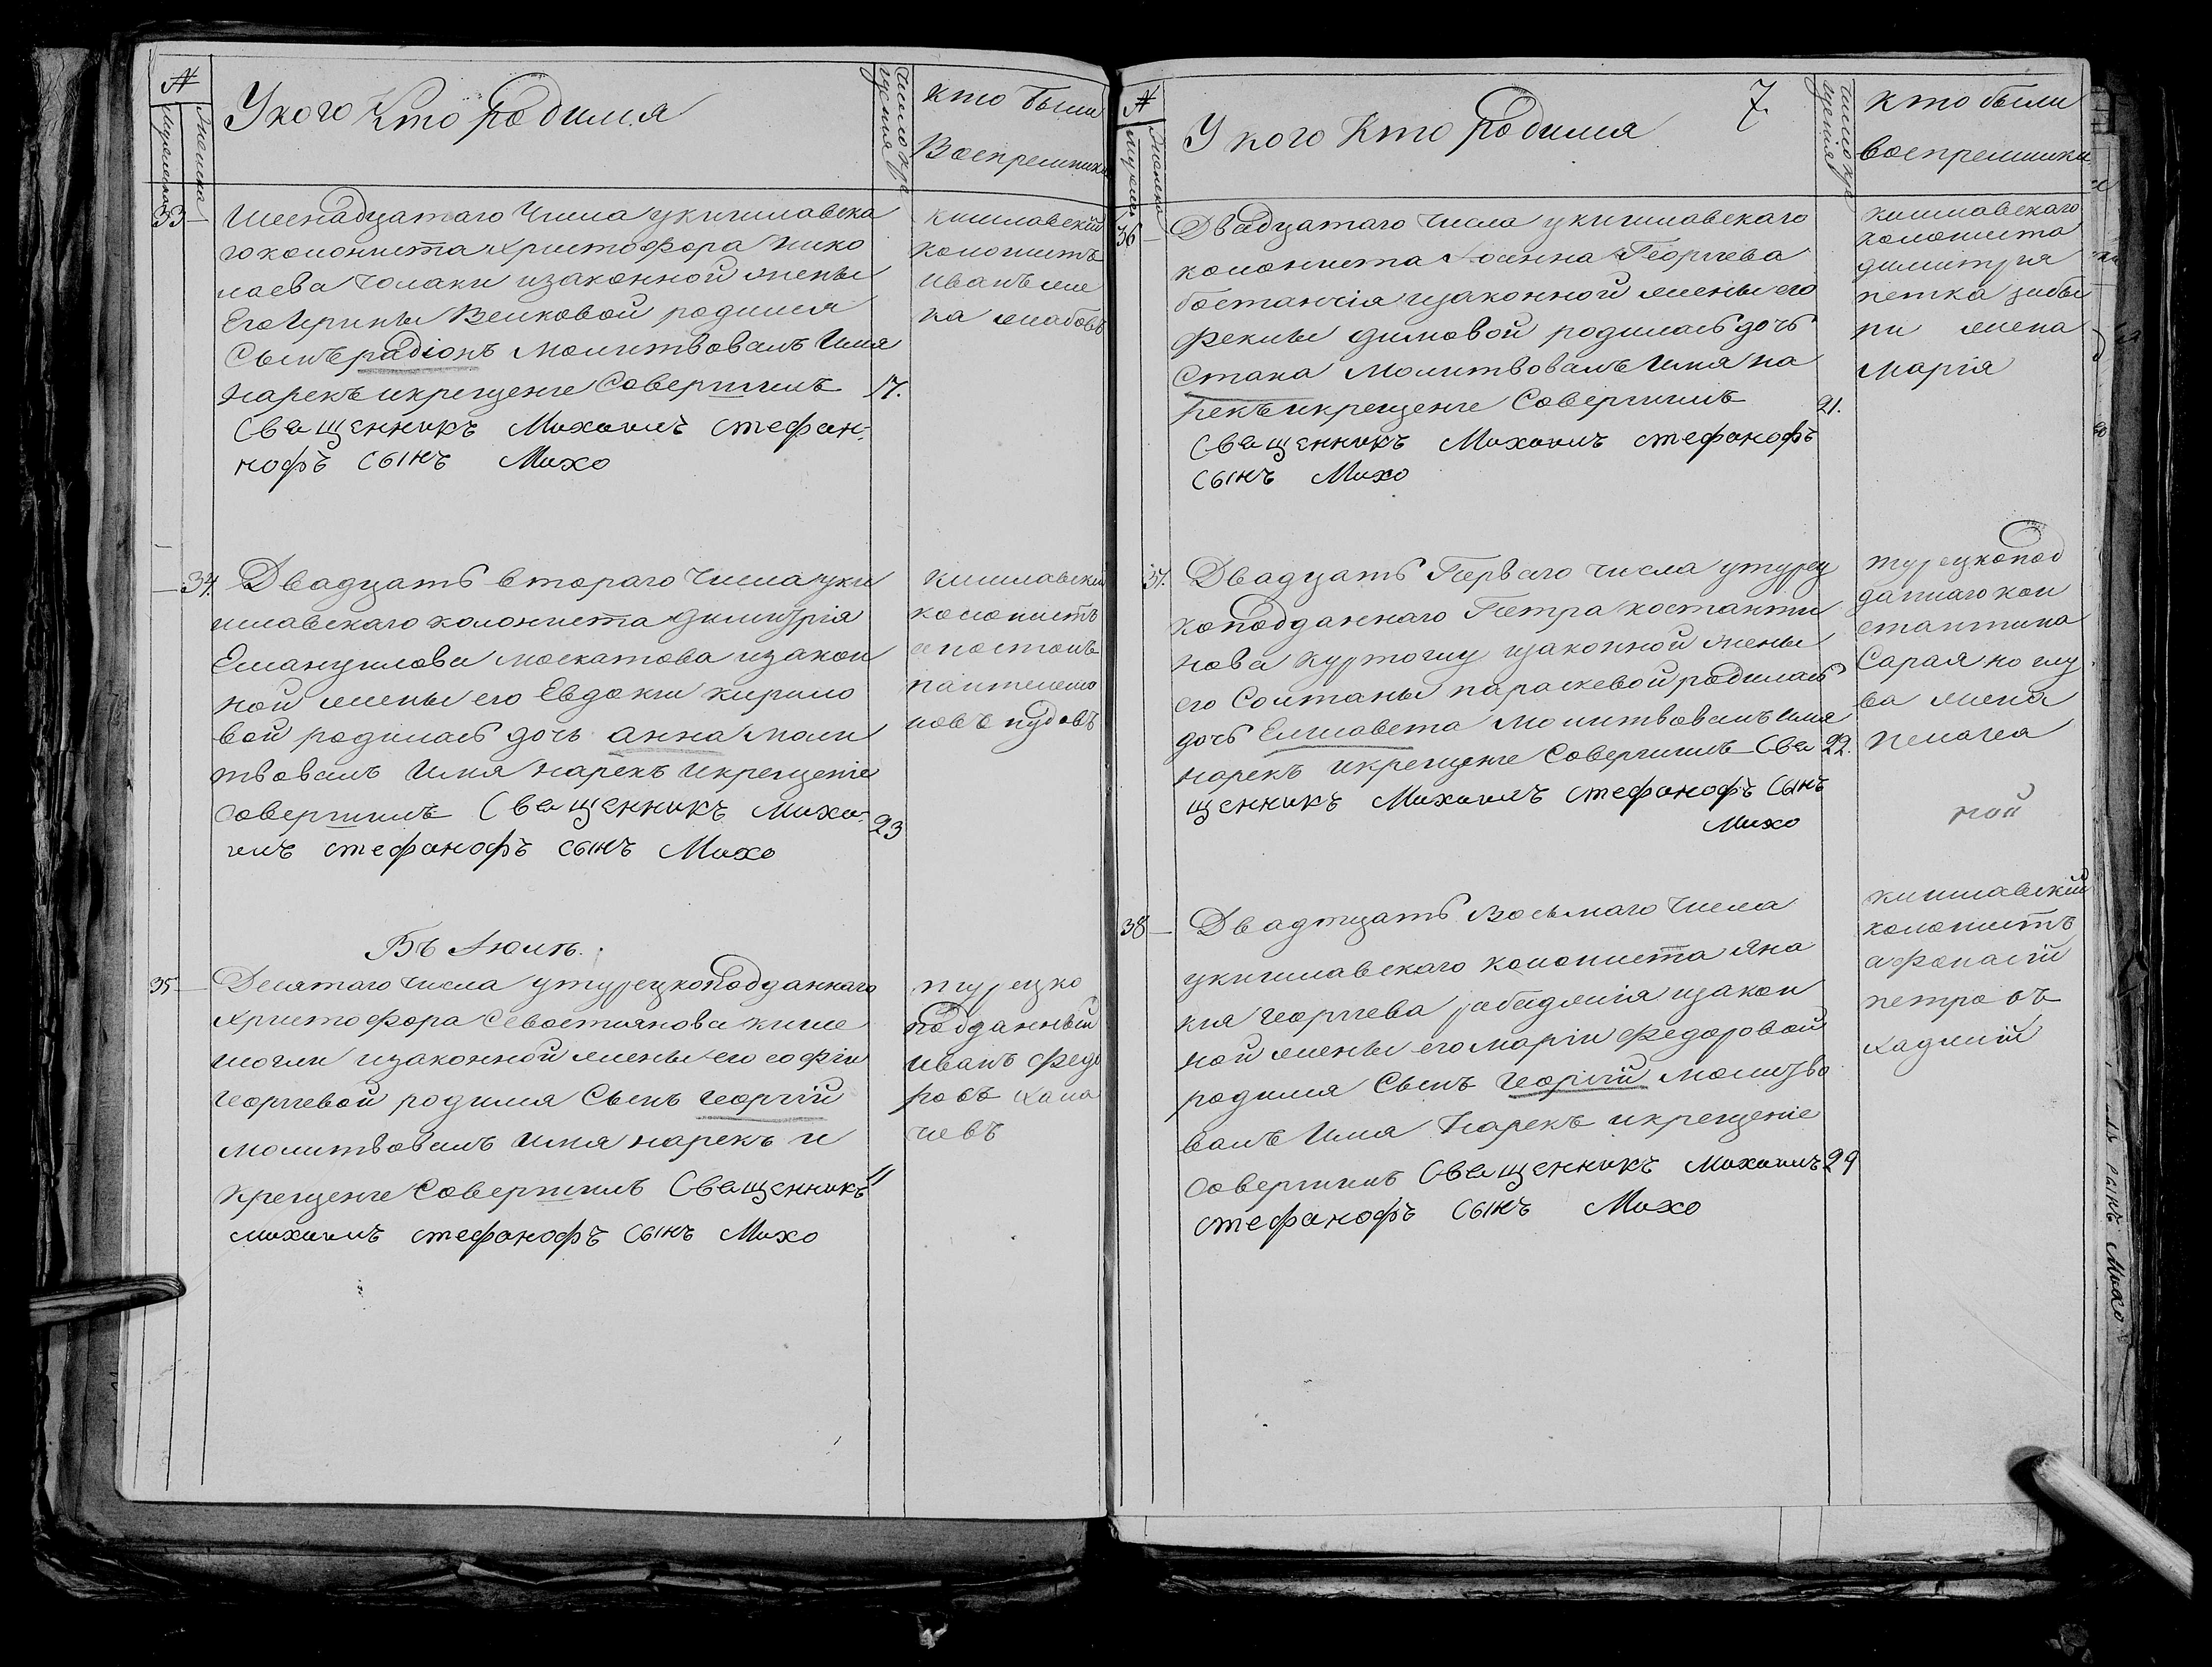 №
Мужеска
Женска
У кого кто родился
Число крещения
кто были
Восприемники
33
Шеснадцатаго Числа укишлавска
го колониста Христофора Нико
лаева Чолаки изаконной жены
Его Ирины Велковой родился
Сынъ радіонъ молитвовалъ Имя
нарекъ икрещение Совершилъ
17.
Священникъ Михаилъ стефан-
нофъ сынъ Михо
кишлавскій
колонистъ
Иванъ
34.
Двадцать втораго Числа уки
шлавскаго колониста Димитрія
Емануилова москатова изакон
ной жены его Евдокии кирило
вой родилась дочь анна моли
твовалъ Имя нарекъ икрещеніе
совершилъ Священникъ Миха-
23
илъ стефанофъ сынъ Михо
кишлавски
колонистъ
апостолъ
пантелемо
новъ
Въ Июлѣ.
35
Десятаго числа утурецкоподданнаго
Христофора Севостиянова
изаконной жены его софіи
георгиевой родился Сынъ георгій
молитвовалъ имя нарекъ и
крещение Совершилъ Священникъ
11
михаилъ стефанофъ сынъ Михо
турецко
подданный
иванъ федо
ровъ
№
Мужеска
Женска
У кого кто родился
7.
Число крещения
кто были
восприемники
36
Двадцатаго числа укишлавскаго
колониста Иоанна Георгиева
бостанжія изаконной жены его
Феклы димовой родилась дочь
Стана молитвовалъ имя на
рекъ икрещение Совершилъ
21.
Священникъ Михаилъ стефанофъ
сынъ Михо
кишлавскаго
колониста
димитрия
петка
жена
марія
37.
Двадцать Перваго числа утурец
коподданнаго Петра костанти
нова куртоглу изаконной жены
его Солтаны параскевой родилась
дочь Елисавета молитвовалъ имя
нарекъ икрещение Совершилъ Свя
22.
щенникъ Михаилъ стефанофъ Сынъ
Михо
турецкопод
даннаго кон
стантина
Сараяноглу
ва жена
пелагея
38
Двадтцать Восьмаго числа
укишлавскаго колониста яна
кия георгиева изакон
ной жены его маріи федоровой
родился Сынъ георгій молитво
валъ имя нарекъ икрещеніе
совершилъ Священникъ Михаилъ
29
стефанофъ Сынъ Михо
кишлавскій
колонистъ
афанасій
петровъ
хаджій